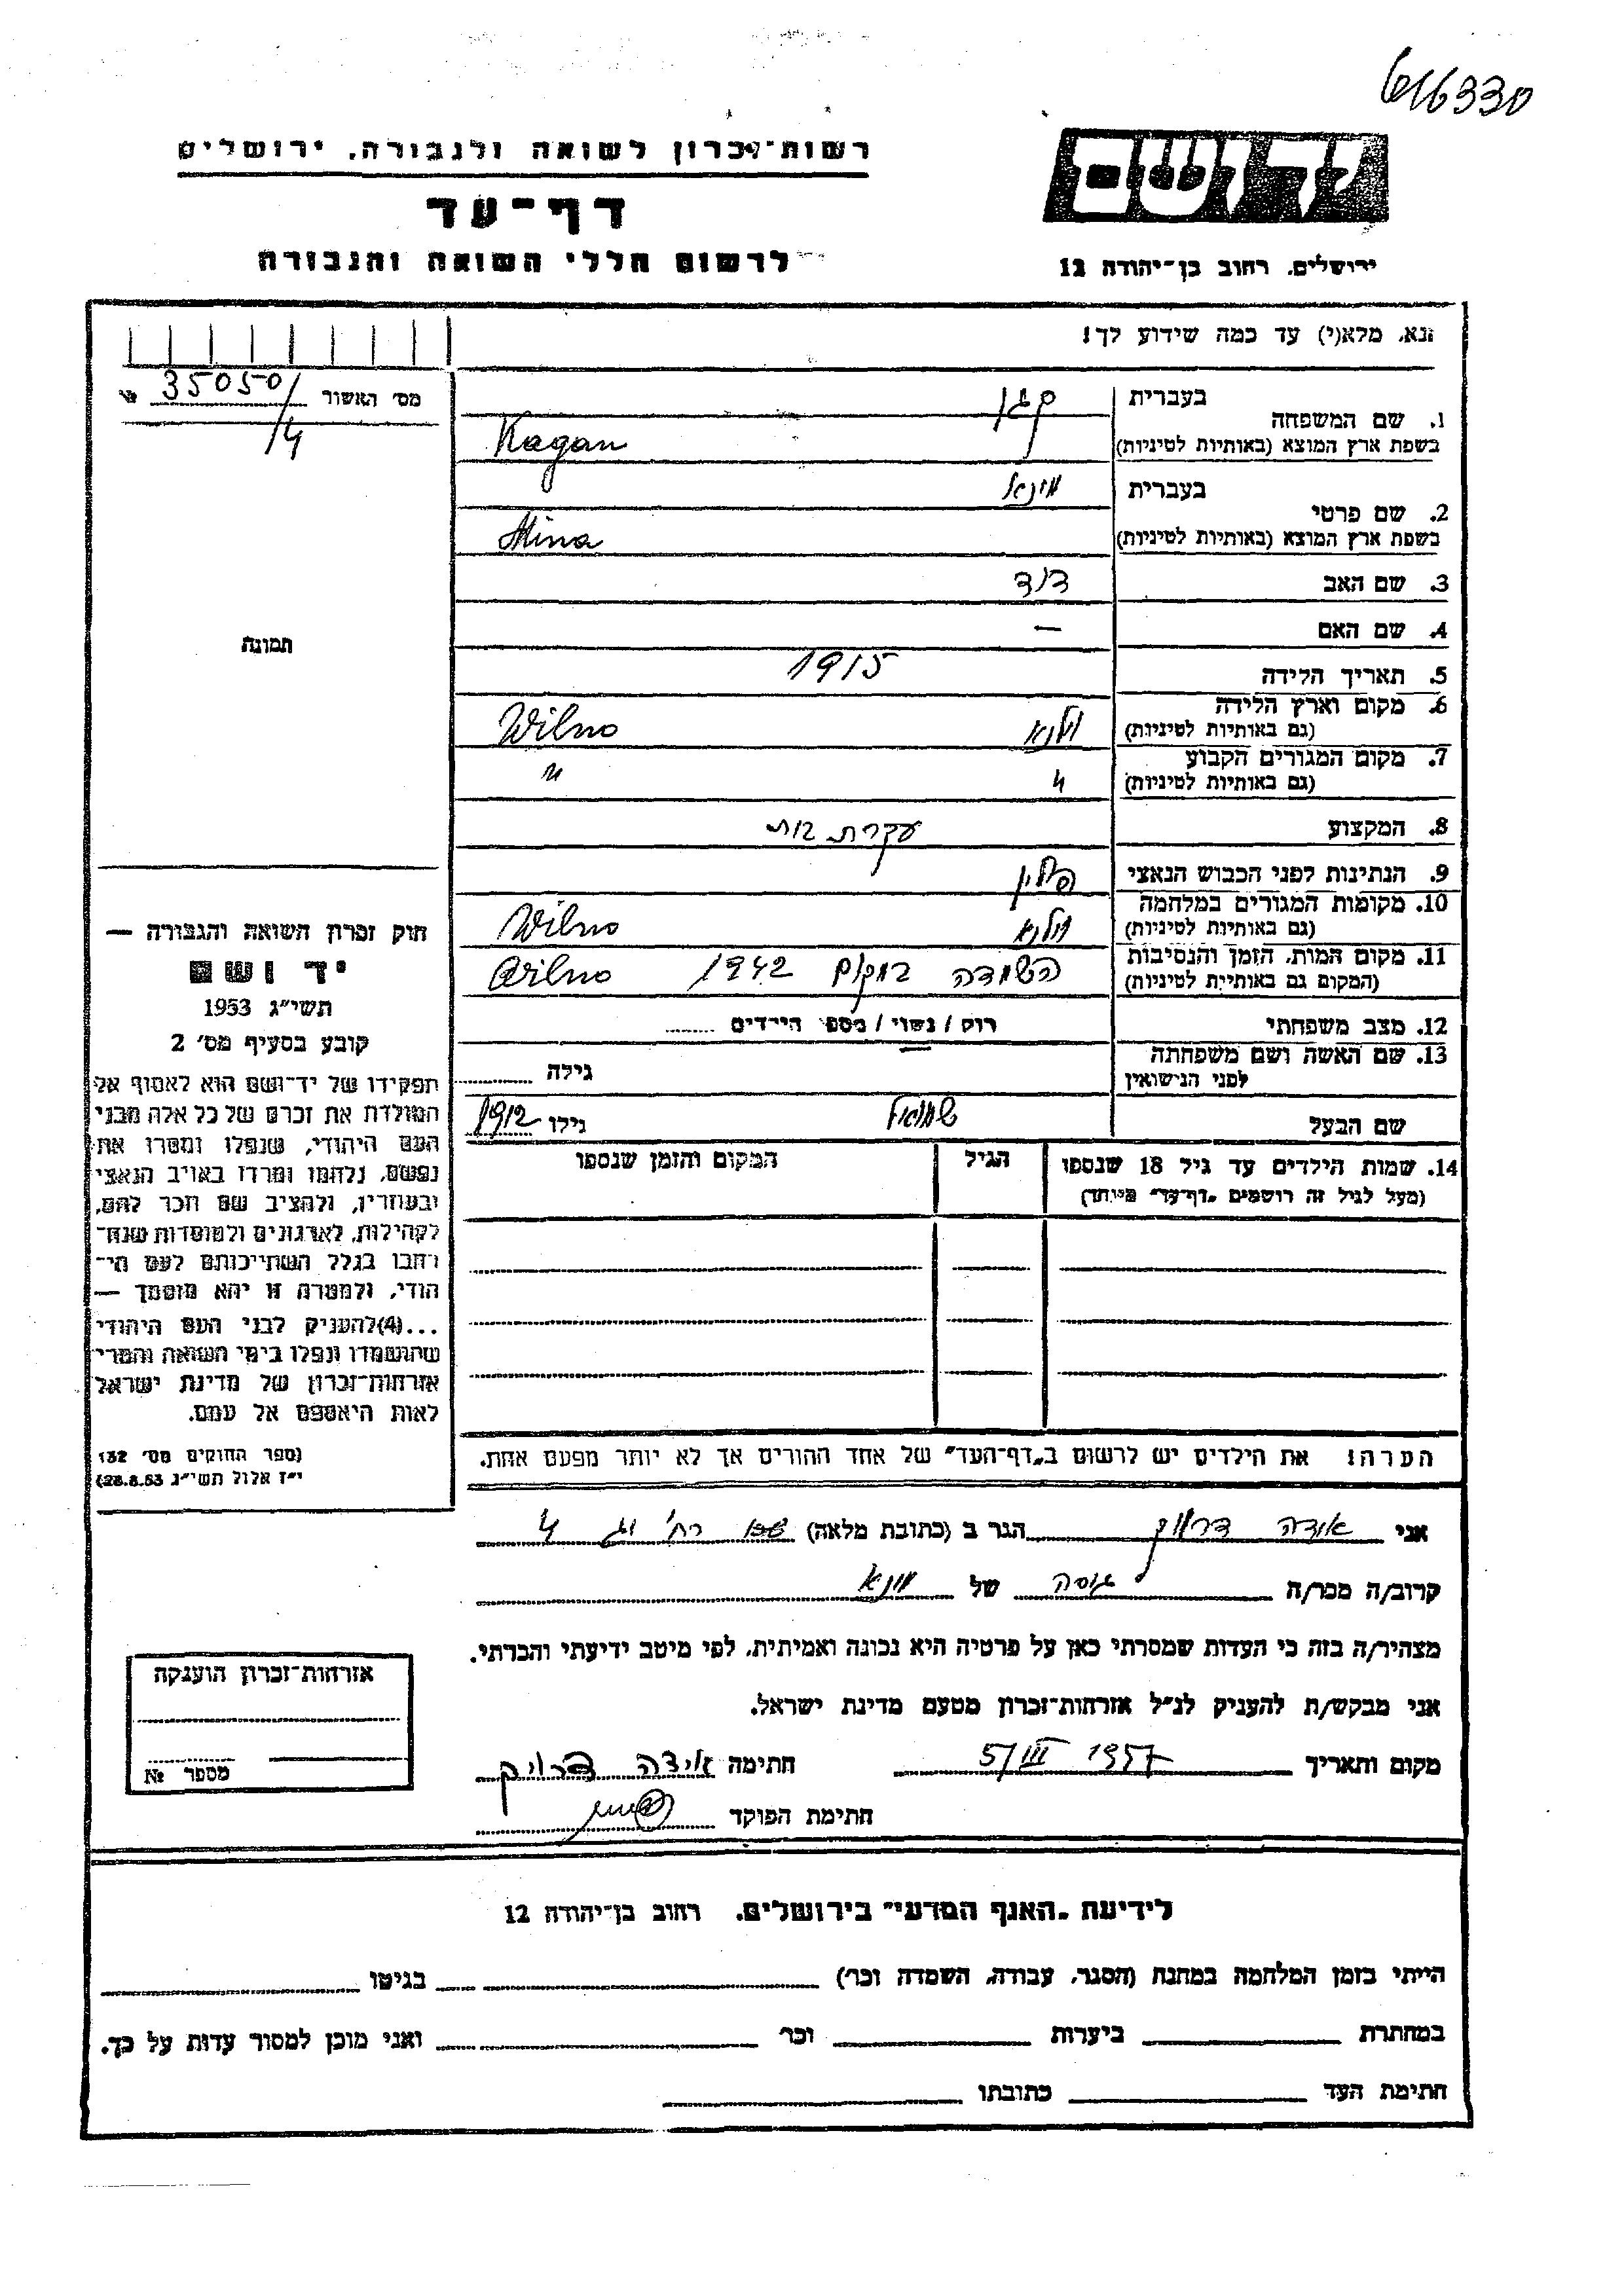 616330
יד ושם
ירושלים, רחוב בן־יהודה 12
רשות־זכרון לשואה ולגבורה, ירושלים
דף־עד
לרשום חללי השואה והגבורה
נא, מלא(י) עד כמה שידוע לך!
מס׳ האשור 35050/
/4
1. שם המשפחה
בעברית קגן
בשפת ארץ המוצא (באותיות לטיניות) Kagan
2. שם פרטי
בעברית מינא
בשפת ארץ המוצא (באותיות לטיניות) Mina
3. שם האב דוד
4. שם האם —
5. תאריך הלידה 1915
6. מקום וארץ הלידה
(גם באותיות לטיניות) וילנא Wilno
7. מקום המגורים הקבוע
(גם באותיות לטיניות) " "
8. המקצוע עקרת בית
9. הנתינות לפני הכבוש הנאצי פולין
10. מקומות המגורים במלחמה
(גם באותיות לטיניות) וילנא Wilno
11. מקום המות, הזמן והנסיבות
(המקום גם באותיות לטיניות) השמדה במקום 1942 Wilno
12. מצב משפחתי רוק / נשוי / מספר הילדים
13. שם האשה ושם משפחתה
לפני הנישואין גילה
שם הבעל שמואל גילו 1912
14. שמות הילדים עד גיל 18 שנספו הגיל המקום והזמן שנספו
(מעל לגיל זה רושמים „דף־עד״ מיוחד)
הערה! את הילדים יש לרשום ב„דף־העד״ של אחד ההורים אך לא יותר מפעם אחת.
תמונה
חוק זכרון השואה והגבורה —
יד ושם
תשי״ג 1953
קובע בסעיף מס׳ 2
תפקידו של יד־ושם הוא לאסוף אל
המולדת את זכרם של כל אלה מבני
העם היהודי, שנפלו ומסרו את
נפשם, נלחמו ומרדו באויב הנאצי
ובעוזריו, ולהציב שם וזכר להם,
לקהילות, לארגונים ולמוסדות שנח־
רבו בגלל השתייכותם לעם הי־
הודי, ולמטרה זו יהא מוסמך —
...(4)להעניק לבני העם היהודי
שהושמדו ונפלו בימי השואה והמרי
אזרחות־זכרון של מדינת ישראל
לאות היאספם אל עמם.
(ספר החוקים מס׳ 132
י״ז אלול תשי״ג 28.8.53)
אני אידה הגר ב (כתובת מלאה) רח׳ 4
קרוב/ה מכר/ה גיסה של מינא
מצהיר/ה בזה כי העדות שמסרתי כאן על פרטיה היא נכונה ואמיתית, לפי מיטב ידיעתי והכרתי.
אני מבקש/ת להעניק לנ״ל אזרחות־זכרון מטעם מדינת ישראל.
מקום ותאריך 5/III 1957 חתימה אידה
חתימת הפוקד
אזרחות־זכרון הוענקה
מספר №
לידיעת „האגף המדעי״ בירושלים, רחוב בן־יהודה 12
הייתי בזמן המלחמה במחנה (הסגר, עבודה, השמדה וכר) בגיטו
במחתרת ביערות וכר ואני מוכן למסור עדות על כך.
חתימת העד כתובתו